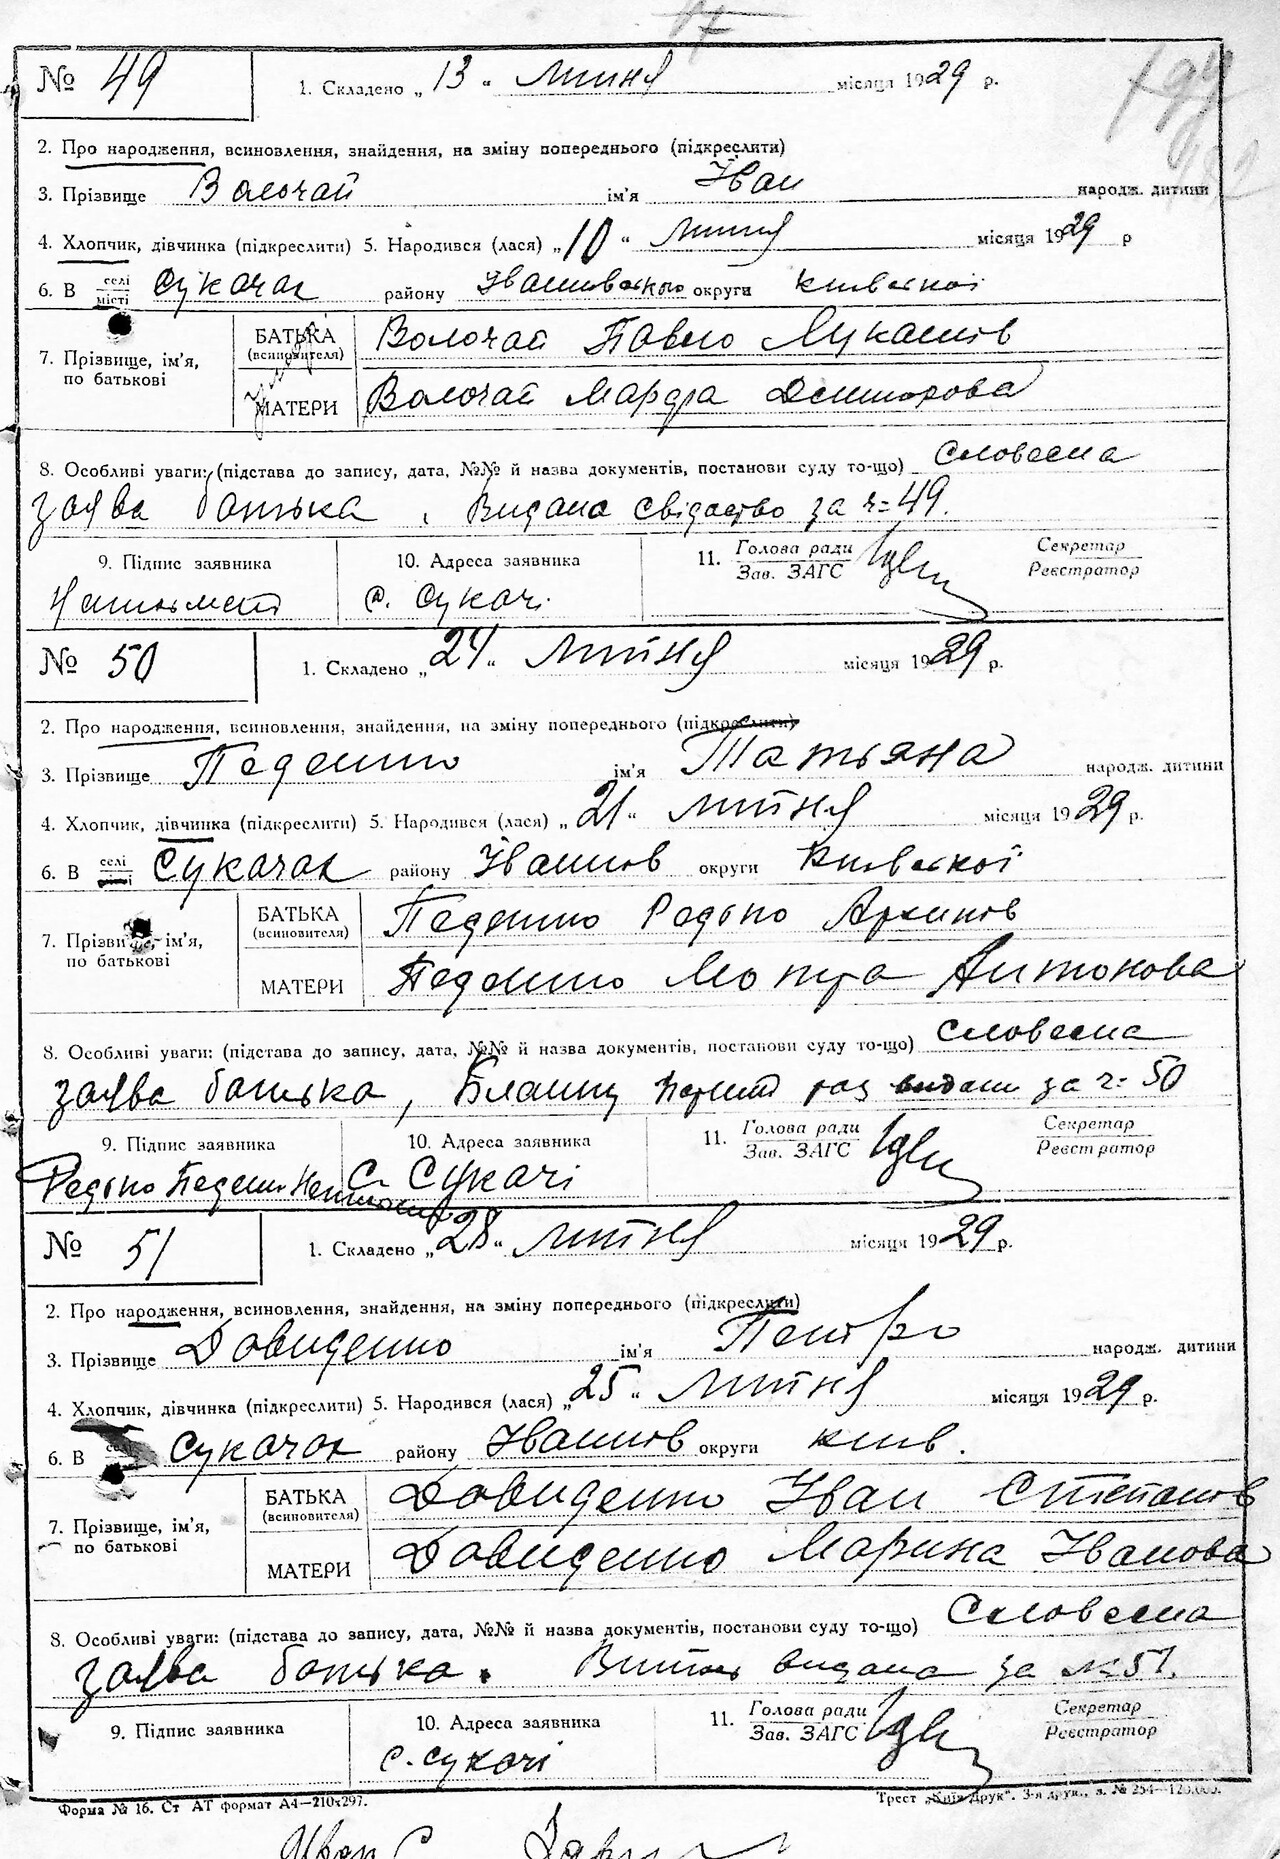 17
№ 49
1. Складено „ 13 “ липня місяця 1929 р.
2. Про народження, всиновлення, знайдення, на зміну попереднього (підкреслити)
3. Прізвище Волочай ім'я Іван народж. дитини
4. Хлопчик, дівчинка (підкреслити) 5. Народився (лася) „ 10 “ липня місяця 1929 р
6. В селі Сукачах району Іванківського округи Київської
місті
БАТЬКА Волочай Павло Лукашів
7. Прізвище, ім'я, (всиновителя)
по батькові
МАТЕРИ Волочай Марфа Дмитрова
8. Особливі уваги: (підстава до запису, дата, №№ й назва документів, постанови суду то-що) Словесна
заява батька, Видана свідоство за ч: 49.
9. Підпис заявника 10. Адреса заявника 11. Голова ради Секретар
Зав. ЗАГС Реєстратор
Неписьмен с. Сукачі
№ 50
1. Складено „ 24 “ липня місяця 1929 р.
2. Про народження, всиновлення, знайдення, на зміну попереднього (підкреслити)
3. Прізвище Педенко ім'я Татьяна народж. дитини
4. Хлопчик, дівчинка (підкреслити) 5. Народився (лася) „ 21 “ липня місяця 1929 р.
6. В селі Сукачах району Іванков округи Київської
місті
БАТЬКА Педенко Редько Архипів
7. Прізвище, ім'я, (всиновителя)
по батькові
МАТЕРИ Педенко Мотра Антонова
8. Особливі уваги: (підстава до запису, дата, №№ й назва документів, постанови суду то-що) Словесна
заява батька, раз видани за ч: 50
9. Підпис заявника 10. Адреса заявника 11. Голова ради Секретар
Зав. ЗАГС Реєстратор
Редько Педенк Неписьмен С. Сукачі
№ 51
1. Складено „ 28 “ липня місяця 1929 р.
2. Про народження, всиновлення, знайдення, на зміну попереднього (підкреслити)
3. Прізвище Довиденко ім'я Петро народж. дитини
4. Хлопчик, дівчинка (підкреслити) 5. Народився (лася) „ 25 “ липня місяця 1929 р.
6. В селі Сукачах району Іванков округи київ.
БАТЬКА Довиденко Іван Степанів
7. Прізвище, ім'я, (всиновителя)
по батькові
МАТЕРИ Довиденко Марина Іванова
8. Особливі уваги: (підстава до запису, дата, №№ й назва документів, постанови суду то-що) Словесна
заява батька. видана за № 51.
9. Підпис заявника 10. Адреса заявника 11. Голова ради Секретар
Зав. ЗАГС Реєстратор
с. Сукачі
Форма № 16. Ст АТ формат А4—210х297. Трест „Київ-Друк“. 3-я друк., з. № 254—120.000.
Иван С